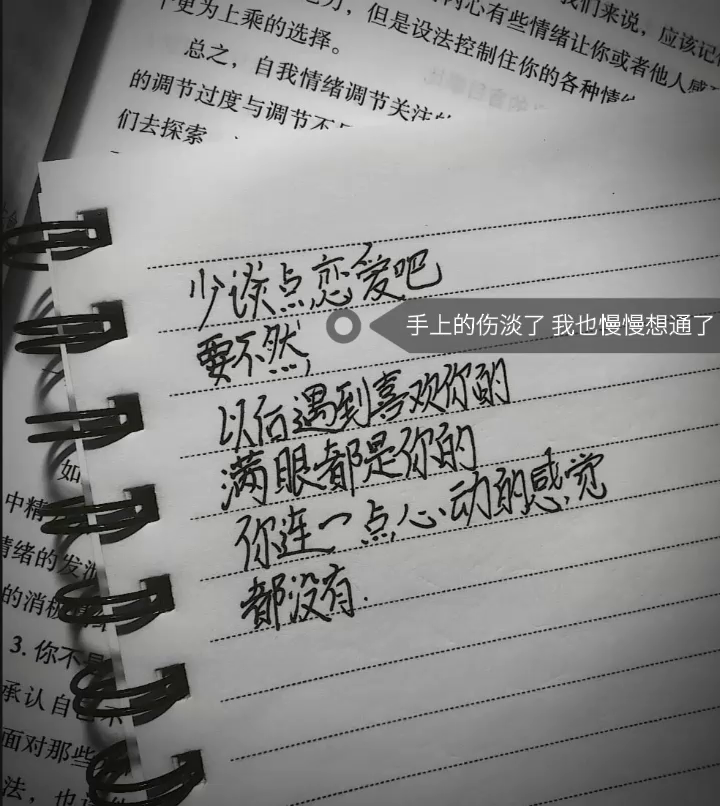 下更为上乘的选择。
总之，自我情绪调节关注
的调节过度与调节不
们去探索
我们来说，应该记
内心有些情绪让你或者他人感
力，但是设法控制住你的各种情
少谈点恋爱吧
手上的伤淡了 我也慢慢想通了
要不然，
以后遇到喜欢你的
满眼都是你的
你连一点心动的感觉
都没有.
如
中精
情绪的发泄
的消极情绪
3. 你不是
承认自己
面对那些
法，也